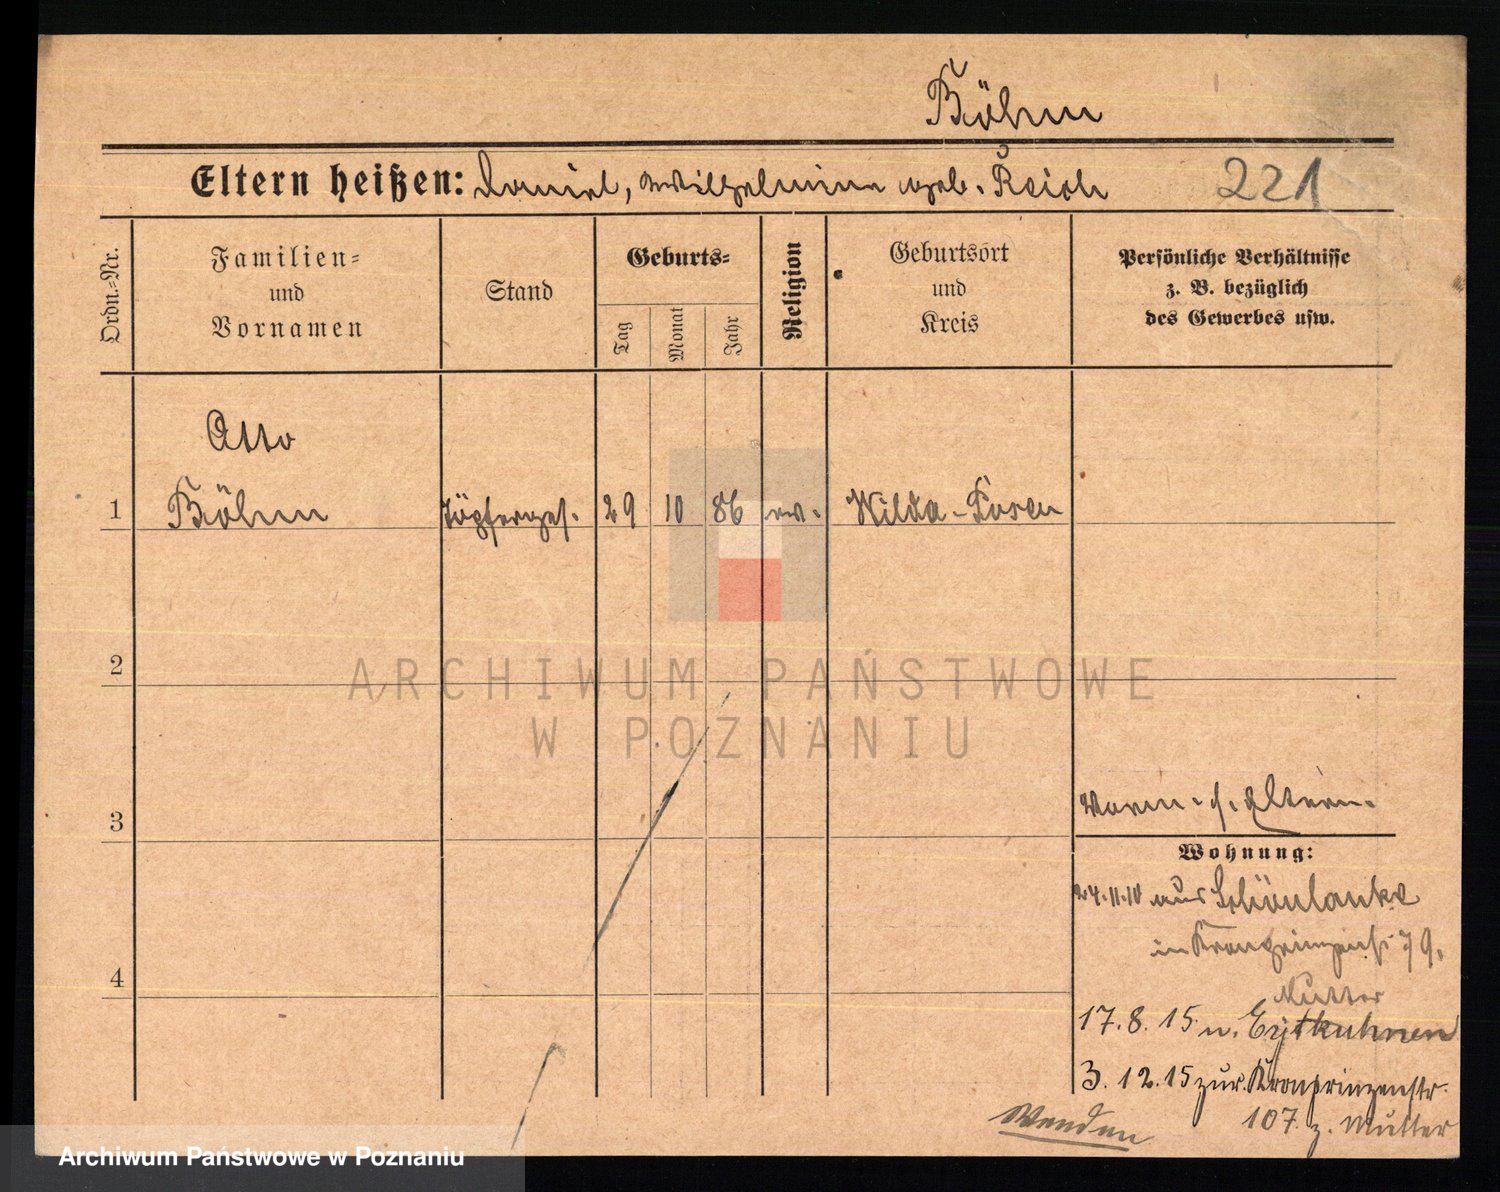 Böhm
Eltern heißen: Daniel, Wilhelmine geb. Reich 221
Ordn.=Nr.
Familien=
und
Vornamen
Stand
Geburts=
Tag
Monat
Jahr
Religion
Geburtsort
und
Kreis
Persönliche Verhältnisse
z. B. bezüglich
des Gewerbes usw.
Otto
1 Böhm Töpferges. 29 10 86 ev. Wilda-Posen
2
ARCHIWUM PAŃSTWOWE
W POZNANIU
3
Eltern.
Wohnung:
24.11.10 aus Schönlanke
in Kronprinzenst. 79.
4
Mutter
17.8.15 n. Eydtkuhnen
3.12.15 zur. Kronprinzenstr.
107 z. Mutter
Wenden
Archiwum Państwowe w Poznaniu